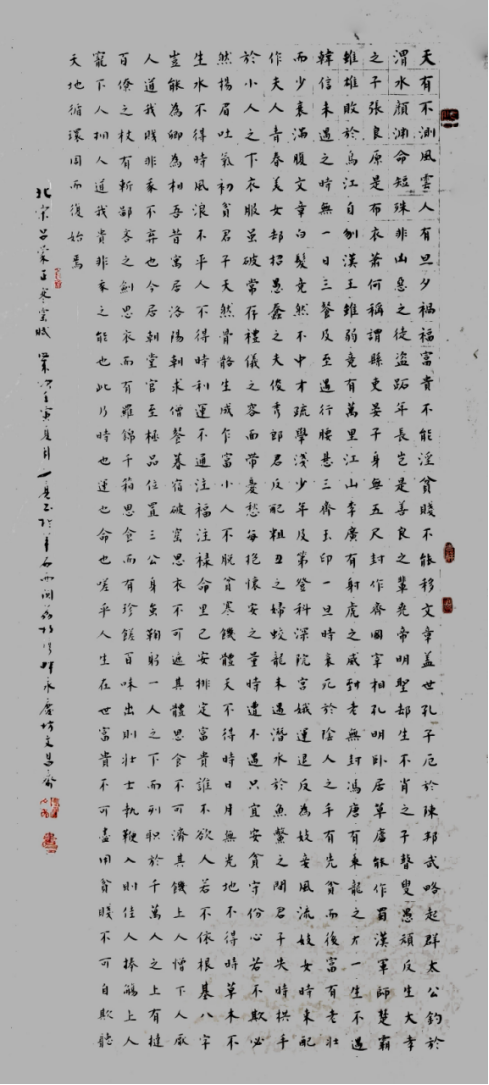 天有不測風雲人有旦夕禍福富貴不能淫貧賤不能移文章蓋世孔子厄於陳邦武略起群太公釣於
渭水顏淵命短殊非山惡之徒盜跖年長豈是善良之輩堯帝明聖却生不肖之子瞽叟愚頑反生大孝
之子張良原是布衣蕭何稱謂縣吏晏子身無五尺封作齊國宰相孔明卧居草廬能作蜀漢軍師楚霸
雖雄敗於烏江自刎漢王雖弱竟有萬里江山李廣有射虎之威到老無封馮唐有乘龍之才一生不遇
韓信未遇之時無一日三餐及至遇行腰懸三齊玉印一旦時衰死於陰人之手有先貧而後富有老壯
而少衰滿腹文章白髮竟然不中才疏學淺少年及第登科深院宮娥運退反為妓妾風流妓女時來配
作夫人青春美女却招愚蠢之夫俊秀郎君反配粗丑之婦蛟龍未遇潛水於魚鱉之間君子失時拱手
於小人之下衣服虽破常存禮儀之容面帶憂愁每抱懷安之量時遭不遇只宜安貧守份心若不欺必
然揚眉吐氣初貧君子天然骨骼生成乍富小人不脫貧寒饑體天不得時日月無光地不得時草木不
生水不得時風浪不平人不得時利運不通注福注祿命里已安排定富貴誰不欲人若不依根基八字
豈能為卿為相吾昔寓居洛陽朝求僧餐暮宿破窑思衣不可遮其體思食不可濟其饑上人憎下人厭
人道我賤非我不弃也今居朝堂官至極品位置三公身虽鞠躬一人之下而列职於千萬人之上有撻
百僚之杖有斬鄙吝之劍思衣而有羅錦千箱思食而有珍饈百味出則壯士執鞭入則佳人捧觴上人
寵下人拥人道我貴非我之能也此乃時也運也命也嗟乎人生在世富貴不可盡用貧賤不可自欺聽
天地循環周而復始焉
北宋吕蒙正寒窑賦 壬寅夏月 永慶坊文昌齋